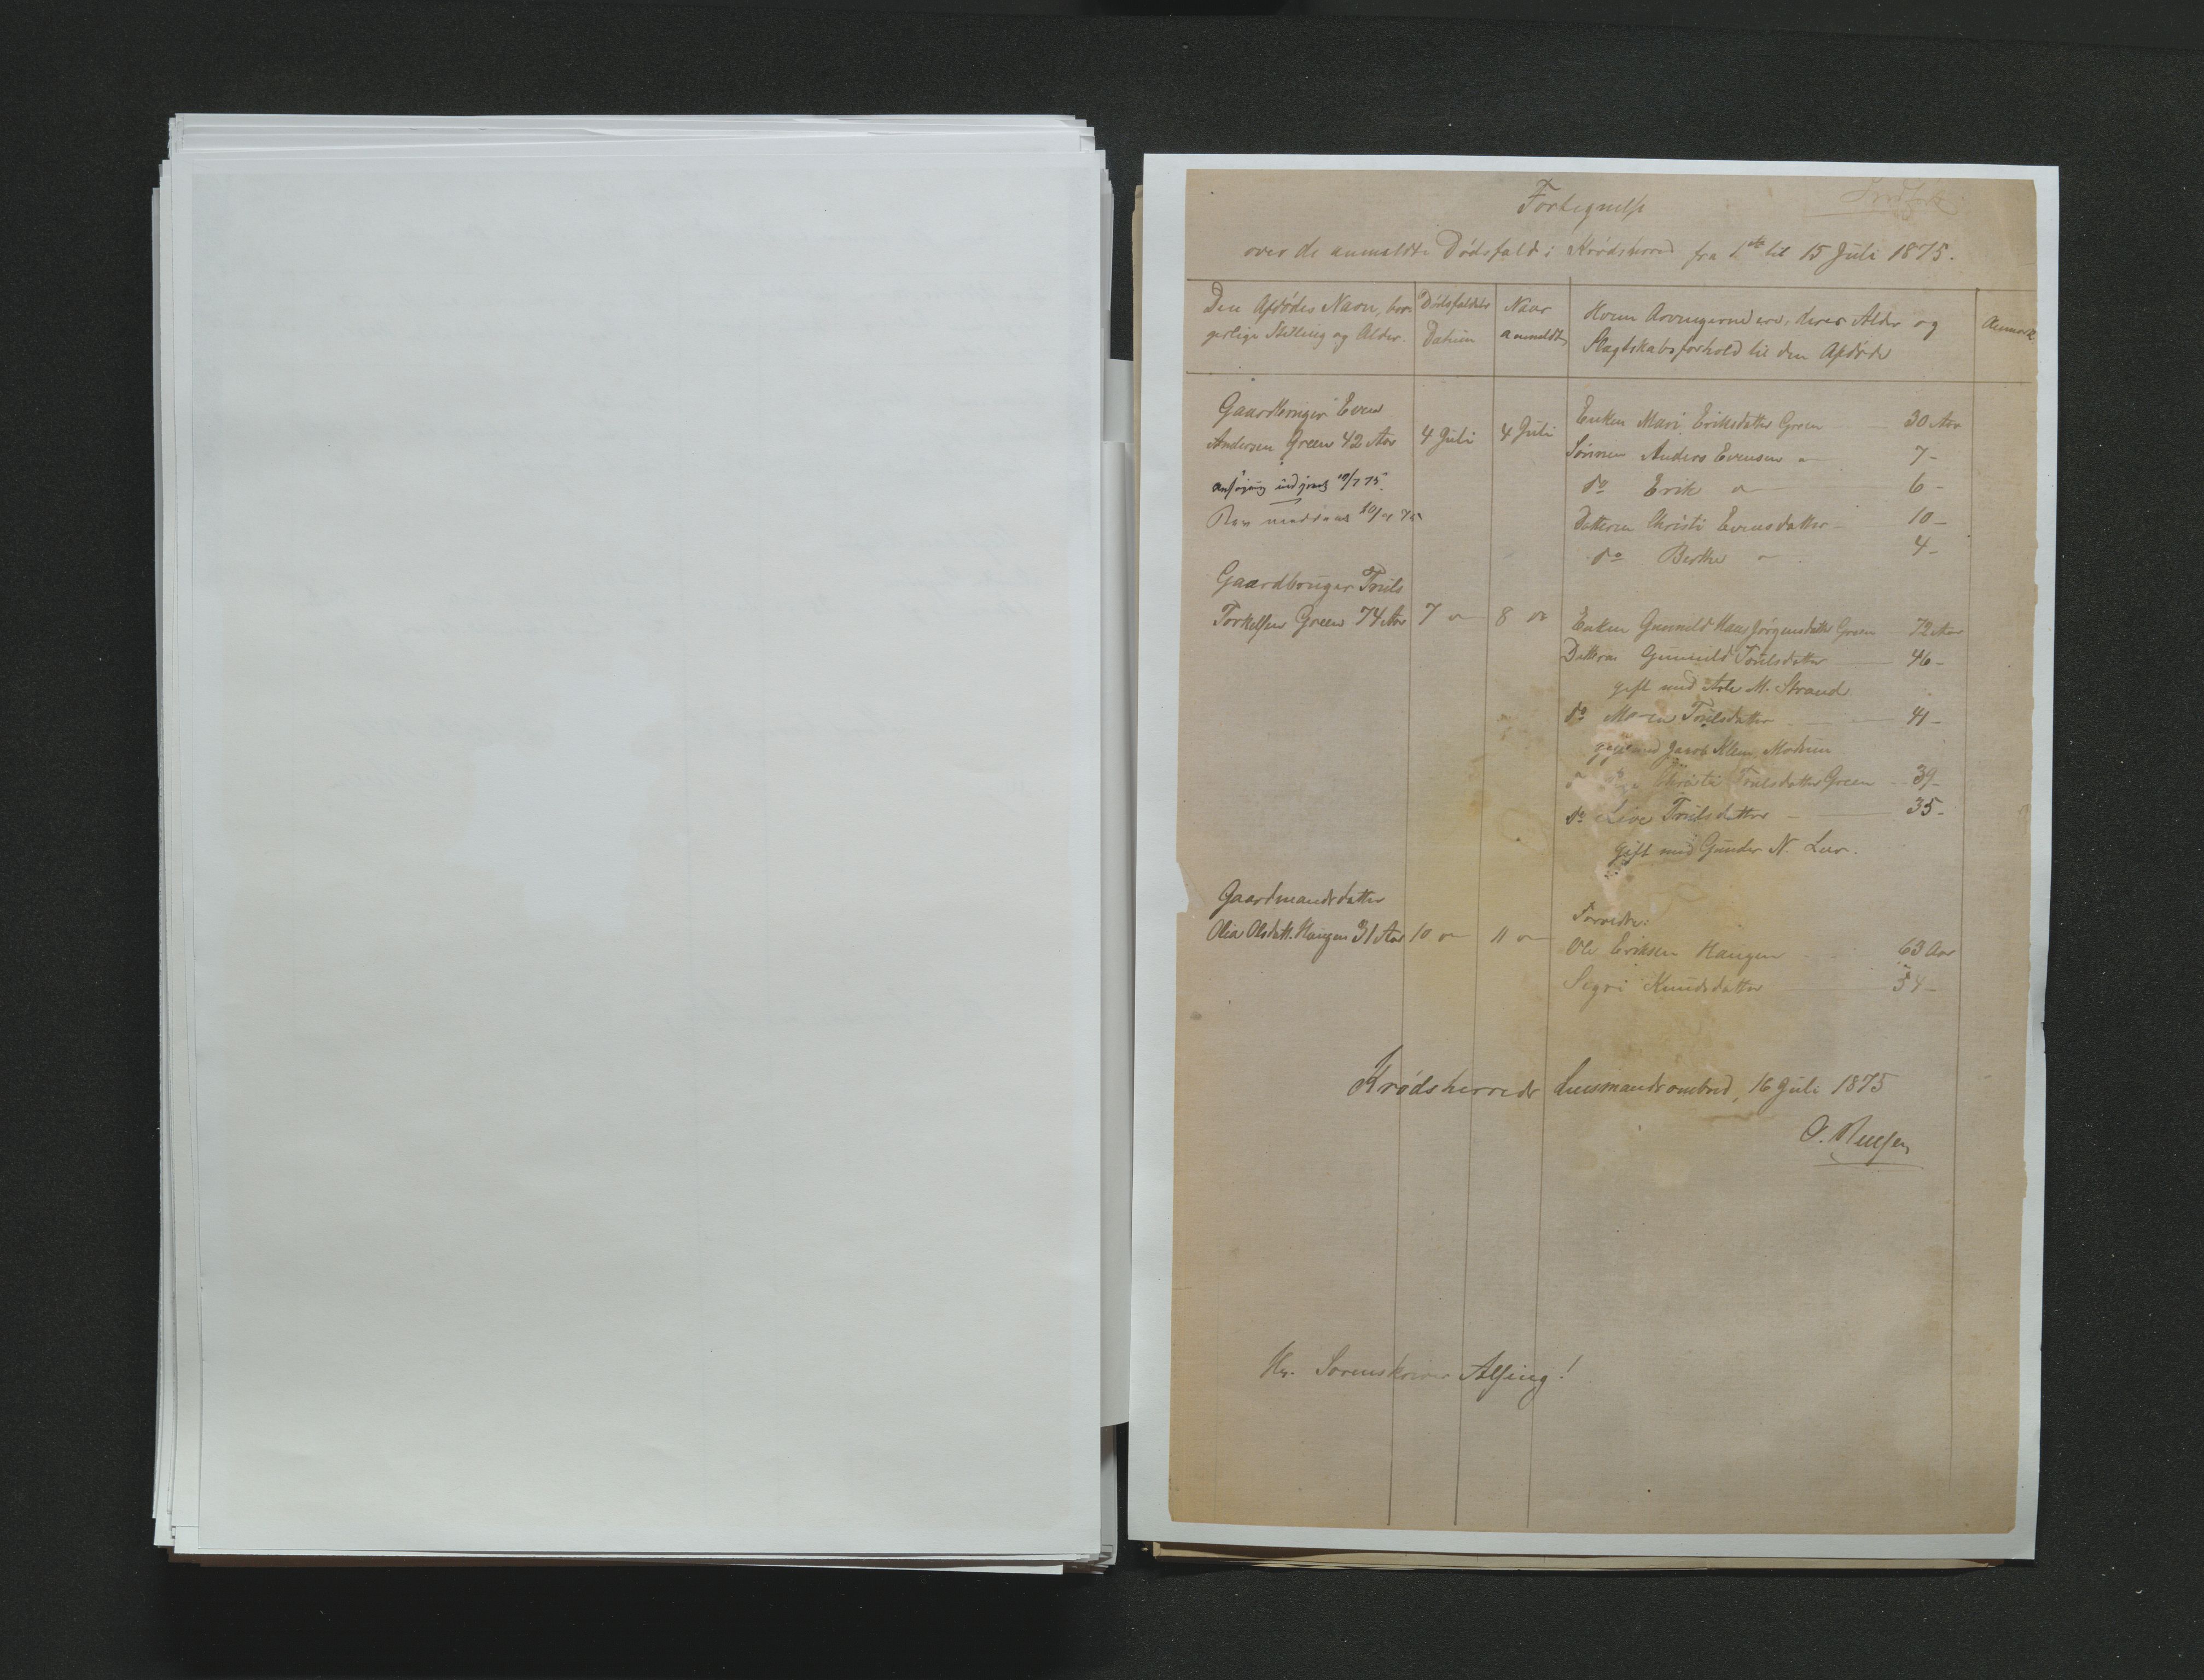 Fortegnelse
over de anmeldte Dødsfald i Krødsherred fra 1ste til 15 Juli 1875.
Den Afdødes Navn, bor-
gerlige Stilling og Alder.
Dødsfaldets
Datum
Naar
anmeldt
Hvem Arvingerne ere, deres Alder og
Slægtskabsforhold til den Afdøde
Anmærk.
Gaardbruger Even
Andersen Green 42 Aar 4 Juli 4 Juli
Enken Mari Eriksdatter Green 30 Aar
Sønnen Anders Evensen " 7 -
do Erik " 6 -
Datteren Christi Evensdatter - 10 -
do Berthe " 4 -
10/7 75.
Gaardbruger Truls
Torkelsen Green 74 Aar 7 " 8 "
Enken Gunnild Hans Jørgensdatter Green 72 Aar
Datteren Gunnild Trulsdatter 46 -
gift med M. Strand
do Trulsdatter 41 -
gift med Jacob Klem, Modum
Christi Trulsdatter Green 39 -
do Live Trulsdatter 35 -
gift med Gunder N. Lur.
Gaardmandsdatter
Olia Olsdatt. Haugen 31 Aar 10 " 11 "
Forældre:
Ole Eriksen Haugen 63 Aar
Sigri Knudsdatter 54 -
Krødsherreds Lensmandsombud, 16 Juli 1875
Hr. Sorenskriver Alsing!